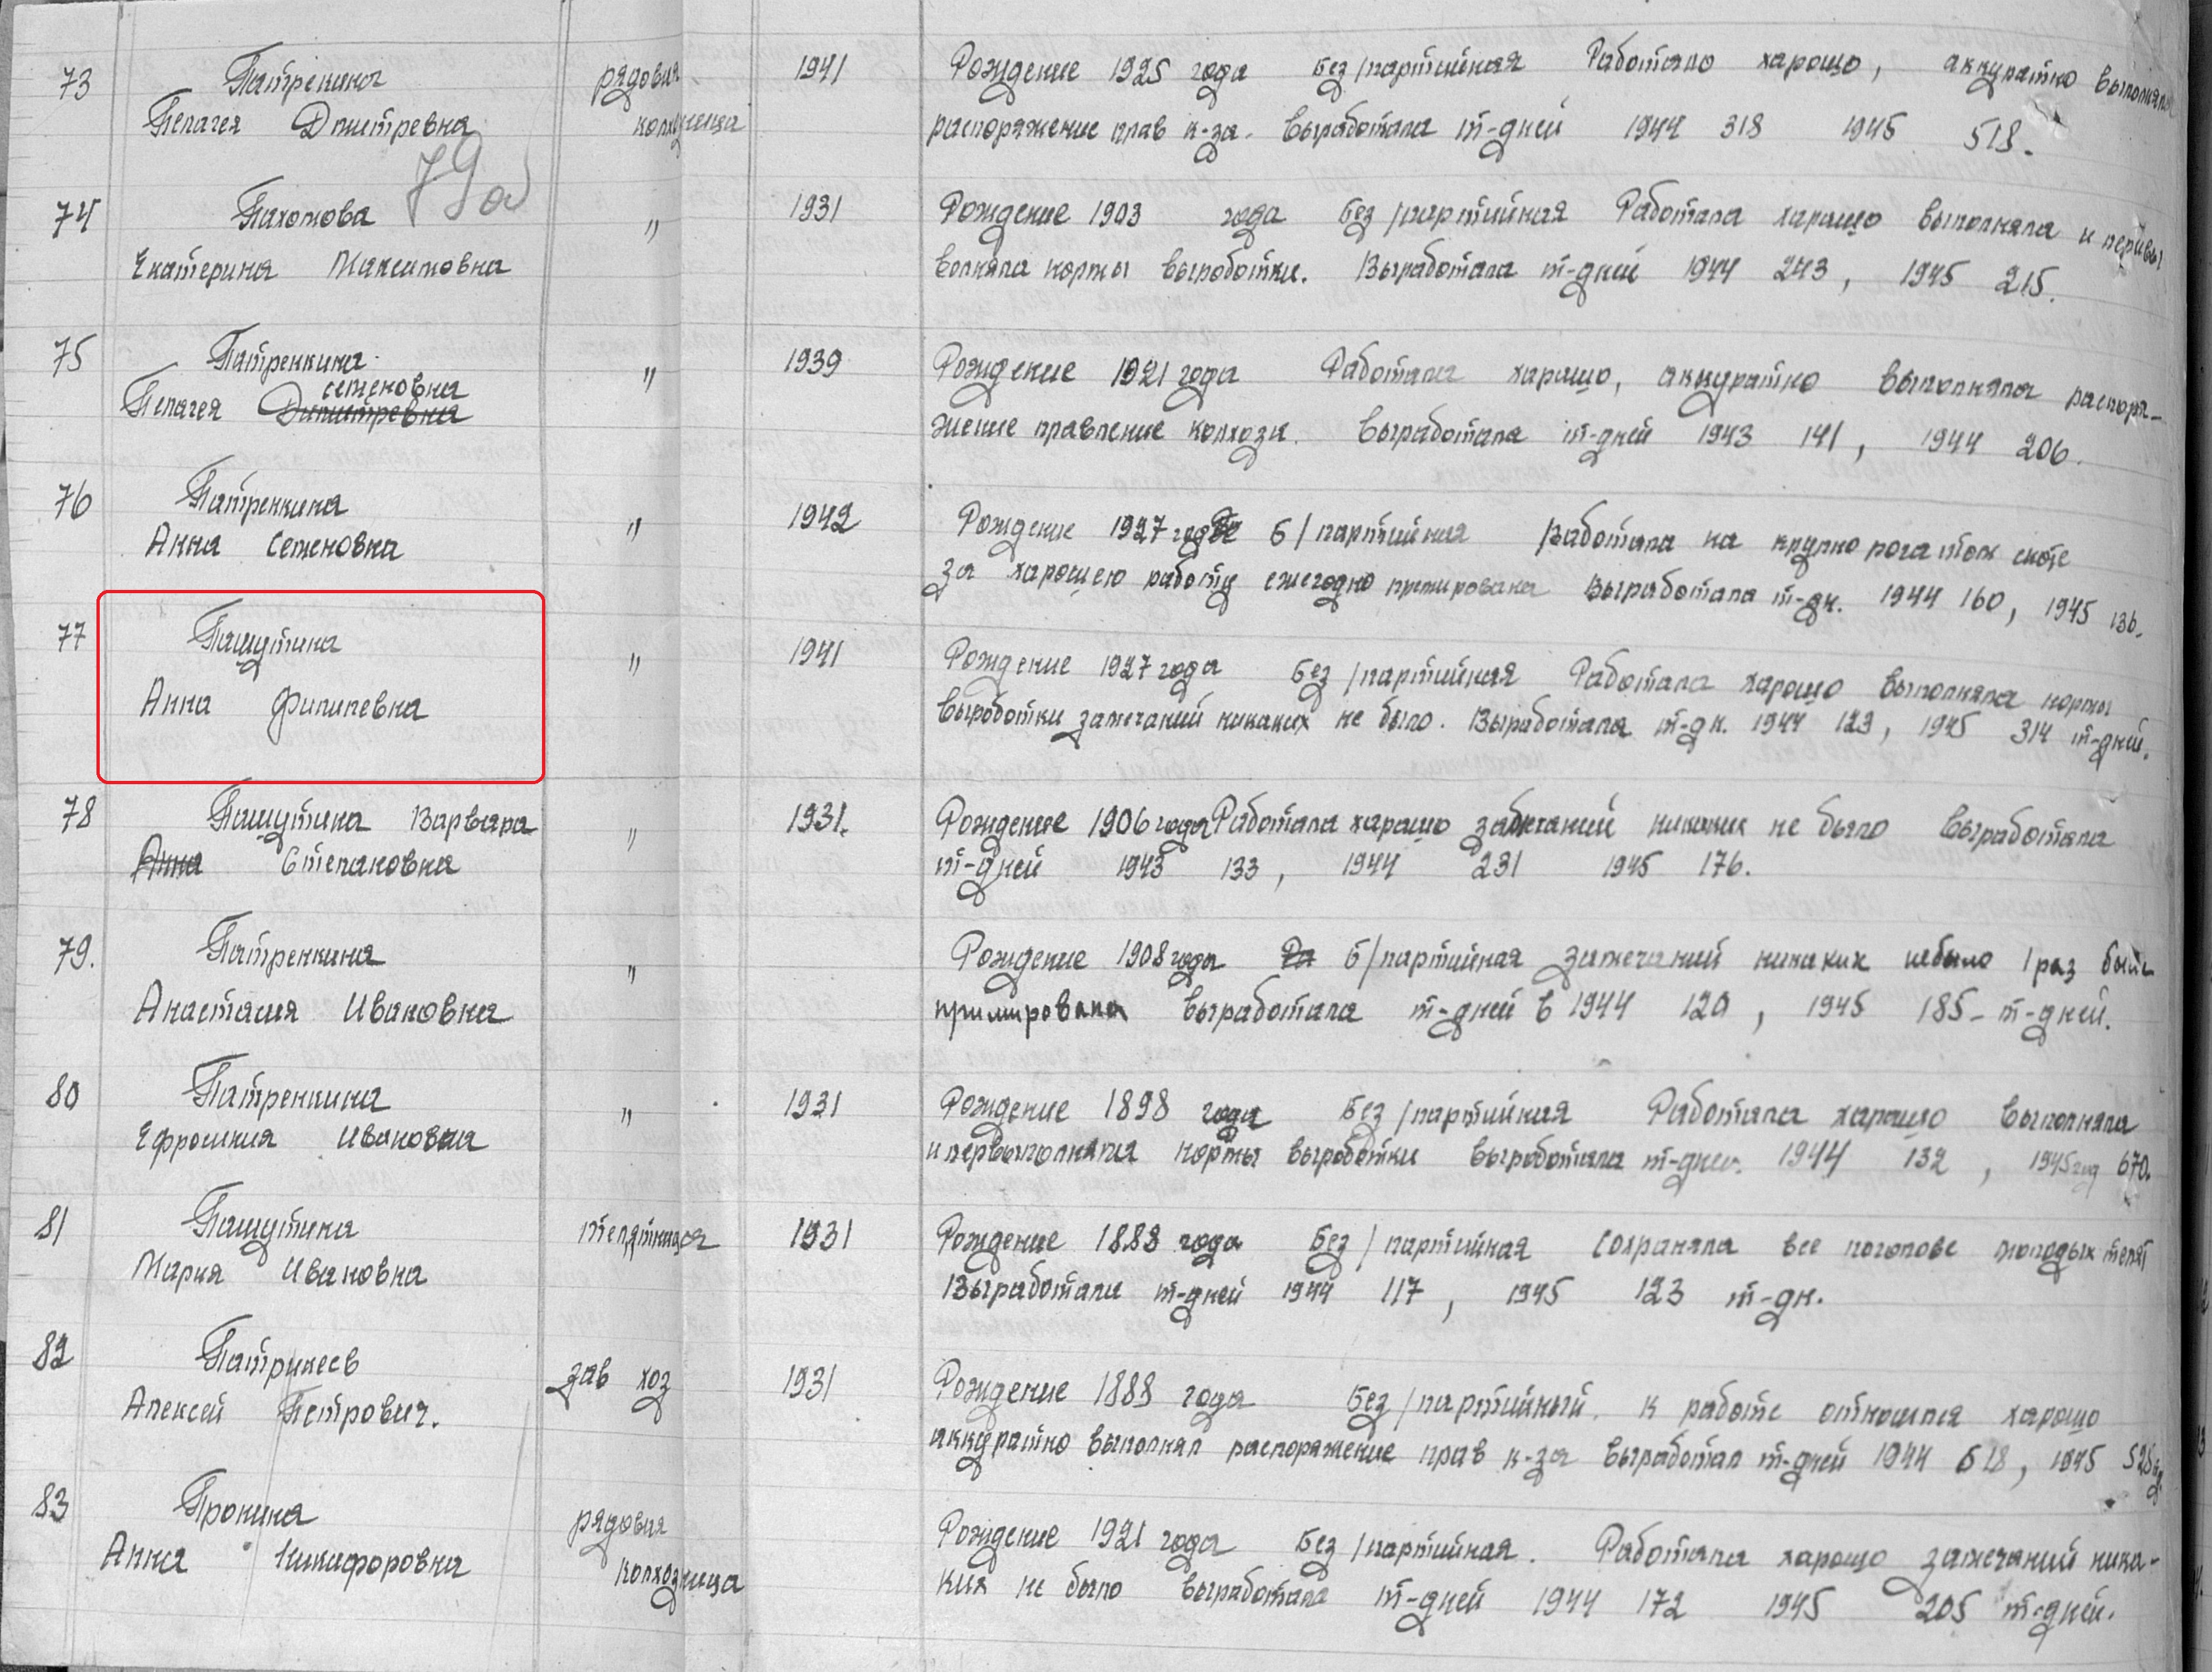 73 Патренкина рядовая 1941 Рождение 1925 года Без/партийная Работало харошо, аккуратно выполняла
Пелагея Дмитревна колхозница распоряжение прав к-за. Выработала т-дней 1944 318 1945 518.
79а
74 Пахомова " 1931 Рождение 1903 года Без/партийная Работала харашо выполняла и перевы
Екатерина Максимовна волняла нормы выроботки. Выработала т-дней 1944 243, 1945 215.
75 Патренкина " 1939 Рождение 1921 года Работала харашо, аккуратно выполняла распоря-
семеновна
Пелагея Дмитревна жение правление колхоза. Выработала т-дней 1943 141, 1944 206.
76 Патренкина " 1942 Рождение 1927 года б/партийная работала на крупно рогатом скоте
Анна Семеновна за харошею работу ежегодно премирована Выработала т-дн. 1944 160, 1945 136.
77 Пашутина " 1941 Рождение 1927 года Без/партийная Работала харашо выполняла нормы
Анна Филипевна выроботки замечаний никаких не было. Выработала т-дн. 1944 123, 1945 314 т-дней.
78 Пашутина Варвара " 1931. Рождение 1906 года Работала харашо замечаний никаких не было выработала
Анна Степановна т-дней 1943 133, 1944 231 1945 176.
79. Патренкина " Рождение 1908 года Ра б/партийная замечаний никаких небыло 1 раз была
Анастасия Ивановна примирована выработала т-дней в 1944 120, 1945 185- т-дней.
80 Патренкина " 1931 Рождение 1898 года Без/партийная Работала харашо выполняла
Ефросиния Ивановна и первыполняла нормы выроботки выработала т-дней. 1944 132, 1945 год 670.
81 Пашутина телятница 1931 Рождение 1888 года Без/партийная Сохраняла все поголове молодых телят
Мария Ивановна Выработала т-дней 1944 117, 1945 123 т-дн.
82 Патрикеев зав хоз 1931 Рождение 1888 года Без/партийный. К работе относился харашо
Алексей Петрович. аккуратно выполнял распоряжение прав к-за выработал т-дней 1944 618, 1945
83 Пронина рядовая Рождение 1921 года Без/партийная. Работала харашо замечаний ника-
Анна Никифоровна колхозница ких не было выработала т-дней 1944 172 1945 205 т-дней.